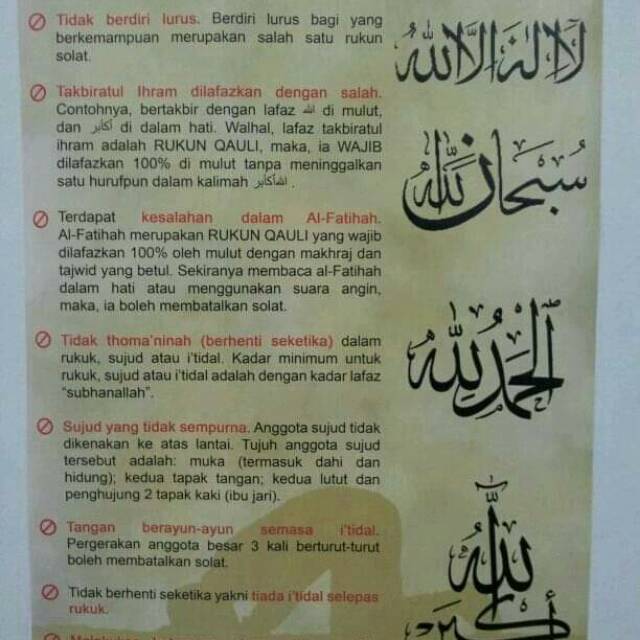 Tidak berdiri lurus. Berdiri lurus bagi yang
berkemampuan merupakan salah satu rukun
solat.
Takbiratul Ihram dilafazkan dengan salah.
Contohnya, bertakbir dengan lafaz الله di mulut,
dan أكابر di dalam hati. Walhal, lafaz takbiratul
ihram adalah RUKUN QAULI, maka, ia WAJIB
dilafazkan 100% di mulut tanpa meninggalkan
satu hurufpun dalam kalimah .
Terdapat kesalahan dalam Al-Fatihah.
Al-Fatihah merupakan RUKUN QAULI yang wajib
dilafazkan 100% oleh mulut dengan makhraj dan
tajwid yang betul. Sekiranya membaca al-Fatihah
dalam hati atau menggunakan suara angin,
maka, ia boleh membatalkan solat.
Tidak thoma'ninah (berhenti seketika) dalam
rukuk, sujud atau i'tidal. Kadar minimum untuk
rukuk, sujud atau i'tidal adalah dengan kadar lafaz
"subhanallah".
Sujud yang tidak sempurna. Anggota sujud tidak
dikenakan ke atas lantai. Tujuh anggota sujud
tersebut adalah: muka (termasuk dahi dan
hidung); kedua tapak tangan; kedua lutut dan
penghujung 2 tapak kaki (ibu jari).
Tangan berayun-ayun semasa i'tidal.
Pergerakan anggota besar 3 kali berturut-turut
boleh membatalkan solat.
Tidak berhenti seketika yakni tiada i'tidal selepas
rukuk.
لا إله إلا الله
سبحان الله
الحمد لله
الله
أكبر